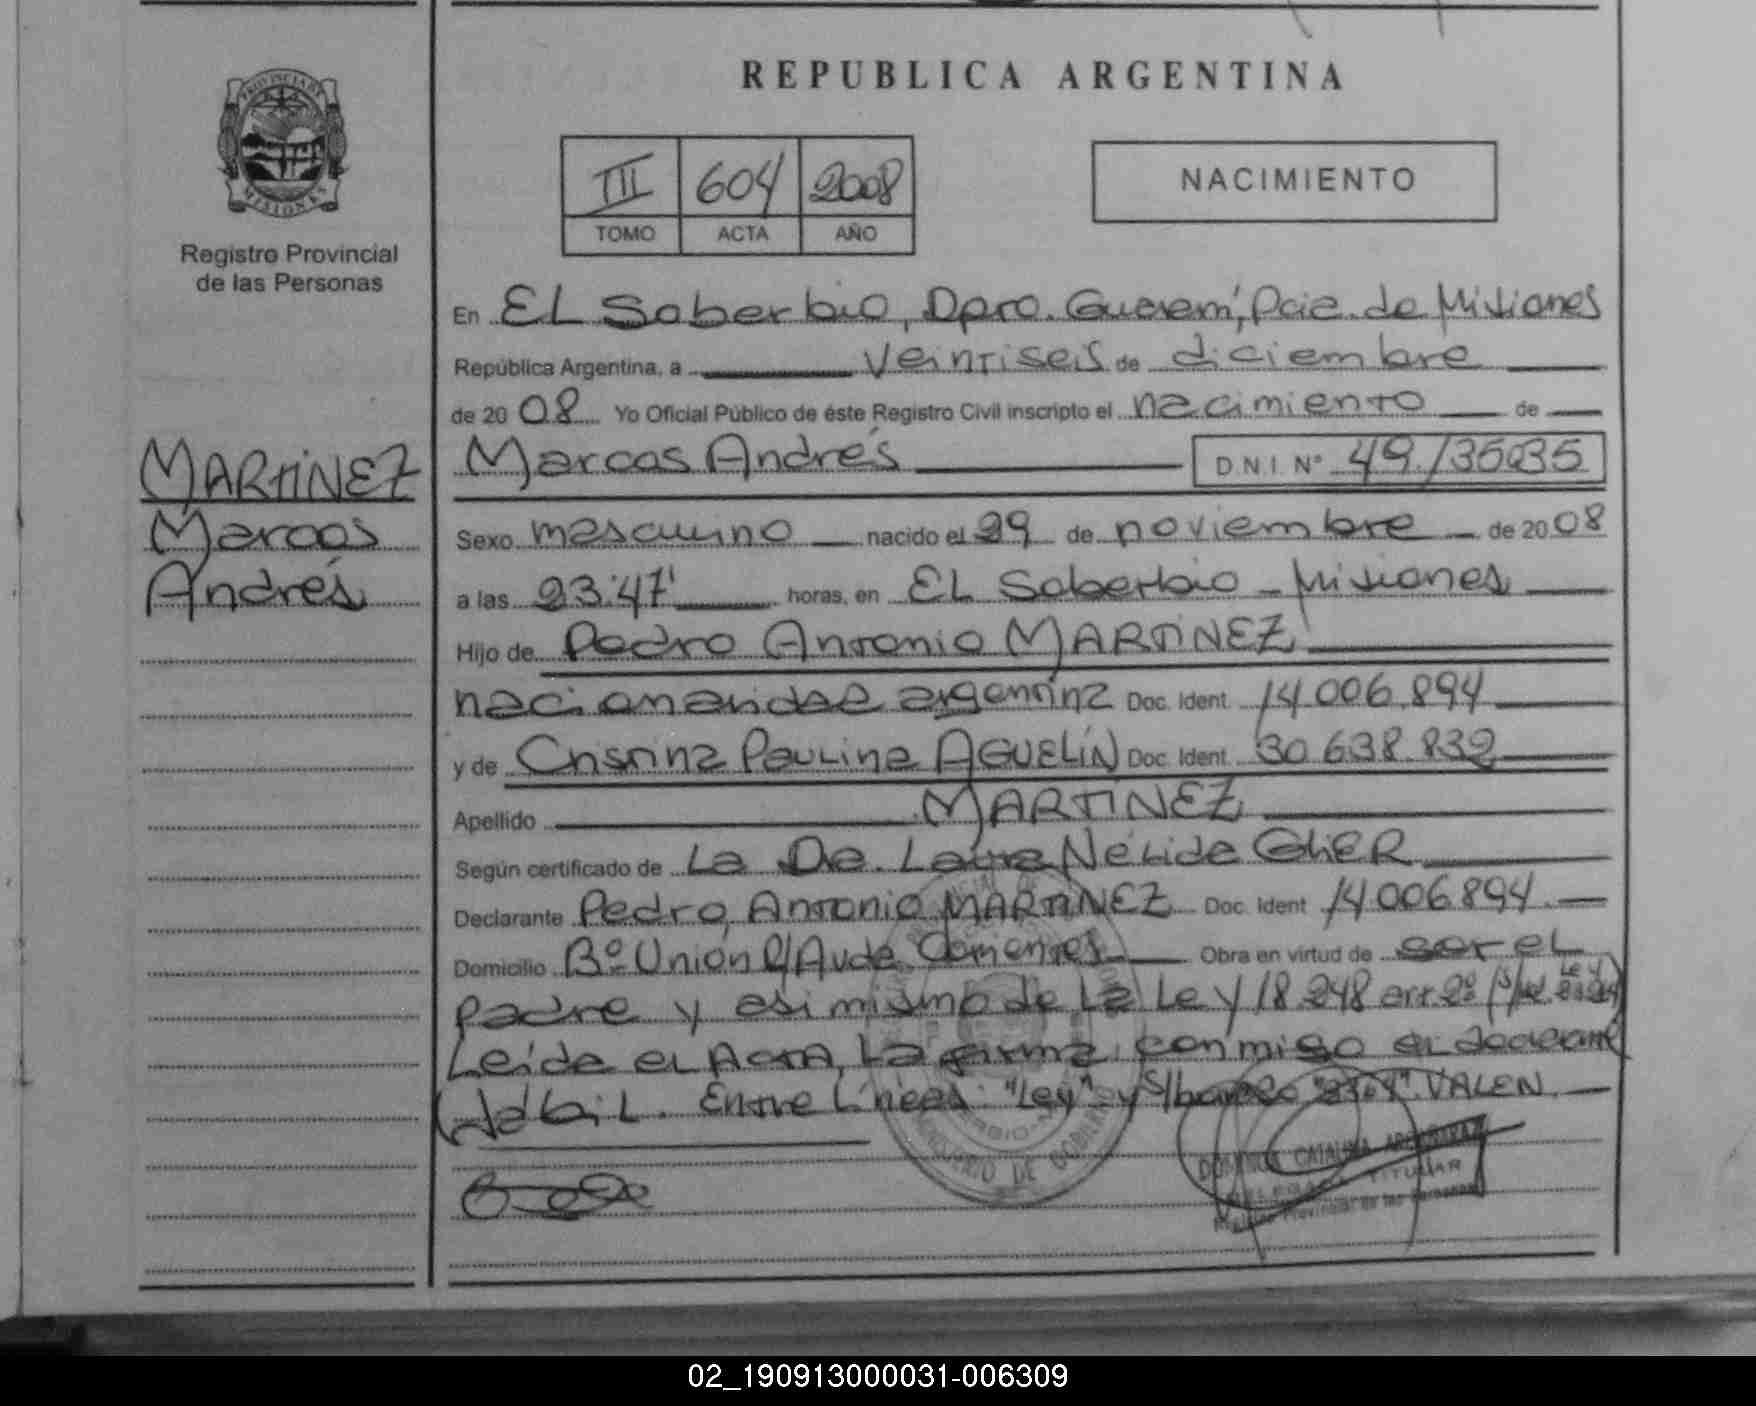 REPUBLICA ARGENTINA
PROVINCIA DE
MISIONES
Registro Provincial
de las Personas
III 604 2008
TOMO ACTA AÑO
NACIMIENTO
En EL Soberbio, Dpto. Guaraní, Pcia. de Misiones
República Argentina, a veintiseis de diciembre
de 2008 Yo Oficial Público de éste Registro Civil inscripto el nacimiento de
MARTINEZ
Marcos
Andrés
Marcos Andrés D.N.I. Nº
Sexo masculino nacido el 29 de noviembre de 2008
a las 23:47' horas, en EL Soberbio - Misiones
Hijo de Pedro Antonio MARTINEZ
nacionalidad argentina Doc. Ident. 14.006.894
y de Cristina Paulina AGUELIN Doc. Ident. 30.638.832
Apellido MARTINEZ
Según certificado de La Dra. Laura Nélida
Declarante Pedro Antonio MARTINEZ Doc. Ident 14.006.894
Domicilio Bº Unión Avda. Corrientes Obra en virtud de ser el
padre y asi mismo de La Ley 18.248 art. 2º
Leida el Acta, La firma conmigo el declarante
habil. Entre Líneas: "Ley" y VALEN
MINISTERIO DE GOBIERNO
CATALINA
TITULAR
Registro Provincial de las Personas
02_190913000031-006309